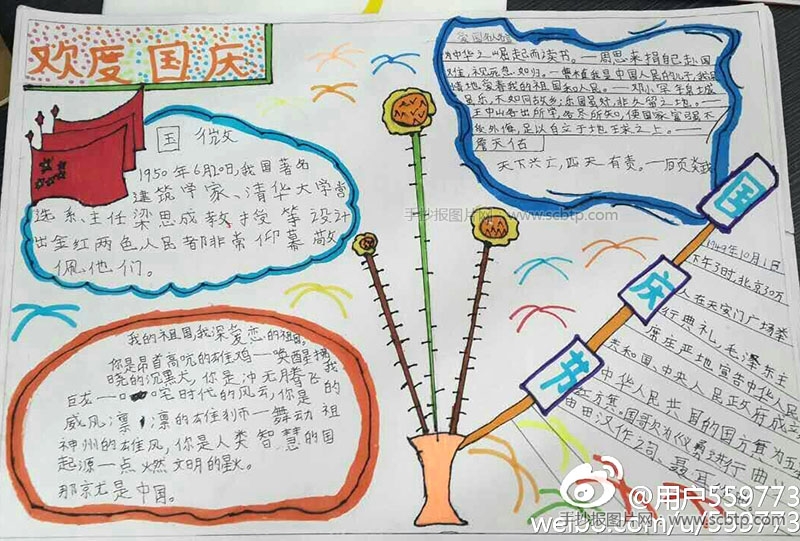 欢度国庆
国徽
1950年6月20日,我国著名
建筑学家、清华大学营
造系主任梁思成教授等设计
出金红两色人民都非常仰慕敬
佩他们。
我的祖国,我深爱恋的祖国,
你是昂首高吭的雄鸡—唤醒
晓的沉黑天,你是冲天腾飞
巨龙一
时代的风云,你是
威风凛凛的雄狮—舞动
神州的雄风,你是人类智慧的
起源—点燃文明的星火。
那京尤是中国。
中华之崛起而读书。—周恩来捐自己赴国
我是中国人民的儿子,我深
情地爱着我的祖国和人民。—邓小平
久留之地。—
王中山务出所学,
使国家富强不
外侮,足以自立于地球之上。—
詹天佑
天下兴亡,匹夫有责。—顾炎武
国庆节
1949年10月1日
下午3时,北京30万
人在天安门广场举
行典礼,毛泽东主
席庄严地宣告中华人民
共和国、中央人民政府成立
中华人民共国的国方旗为五
国歌为《义勇进行曲
田汉作词 聂耳
手抄报图片网 www.scbtp.com
@用户559773
weibo.com/u/559773
手抄报图片网 www.scbtp.com